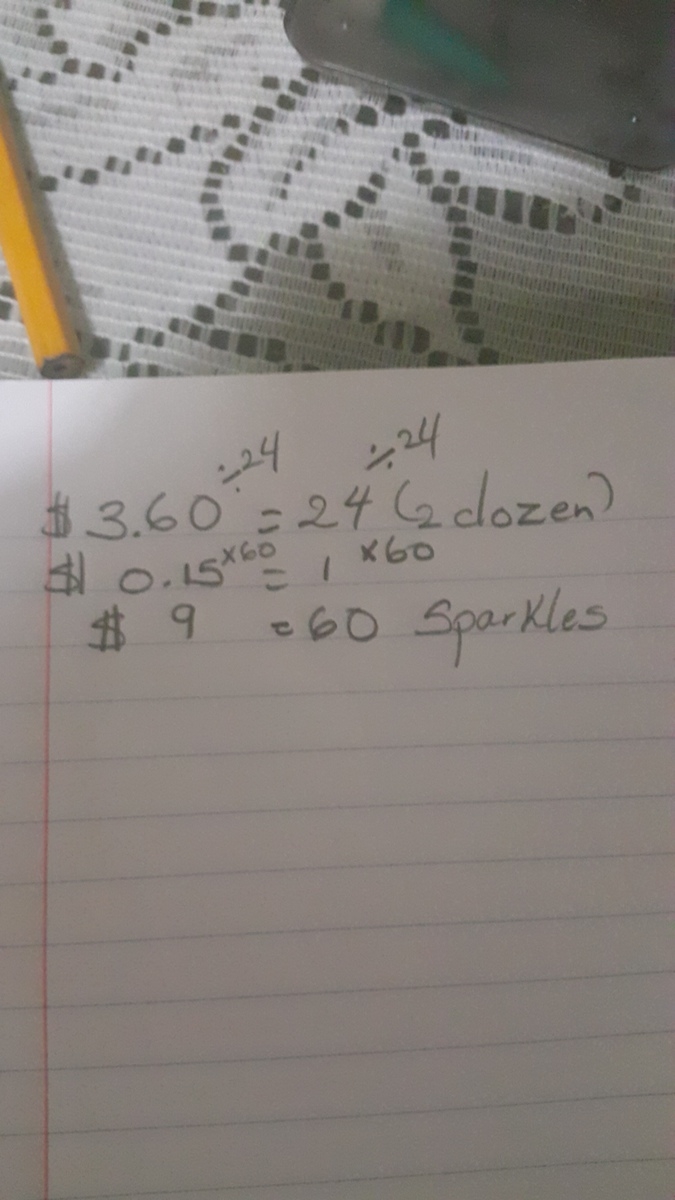 ÷24 ÷24
$ 3.60 = 24 (2 dozen)
$ 0.15 x60 = 1 x60
$ 9 = 60 Sparkles